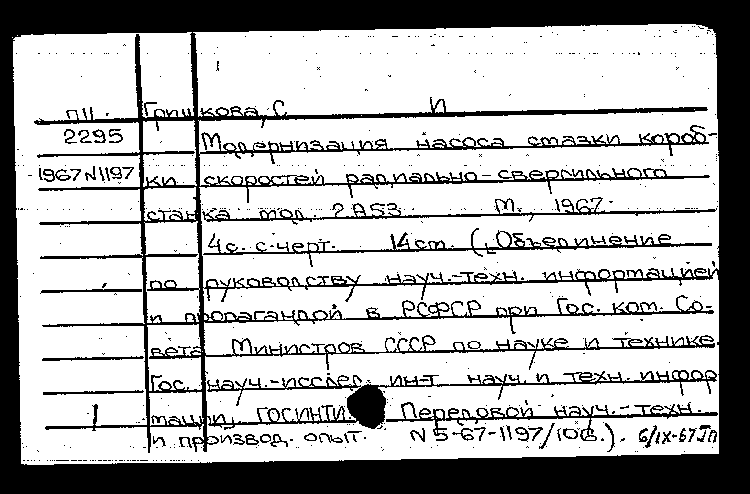 П11. Гришкова, С И
2295 Модернизация насоса смазки короб-
1967 N1197 ки скоростей радиально-сверлильного
станка мод. 2А53. М., 1967.
4с. с черт. 14 cm. (Объединение
по руководству науч.-техн. информацией
и пропагандой в РСФСР при Гос. ком. Со-
вета Министров СССР по науке и технике.
Гос. науч.-исслед. ин-т науч. и техн. инфор
мации, ГОСИНТИ Передовой науч.-техн.
и производ. опыт. N 5-67-1197/106.). 6/IX-67